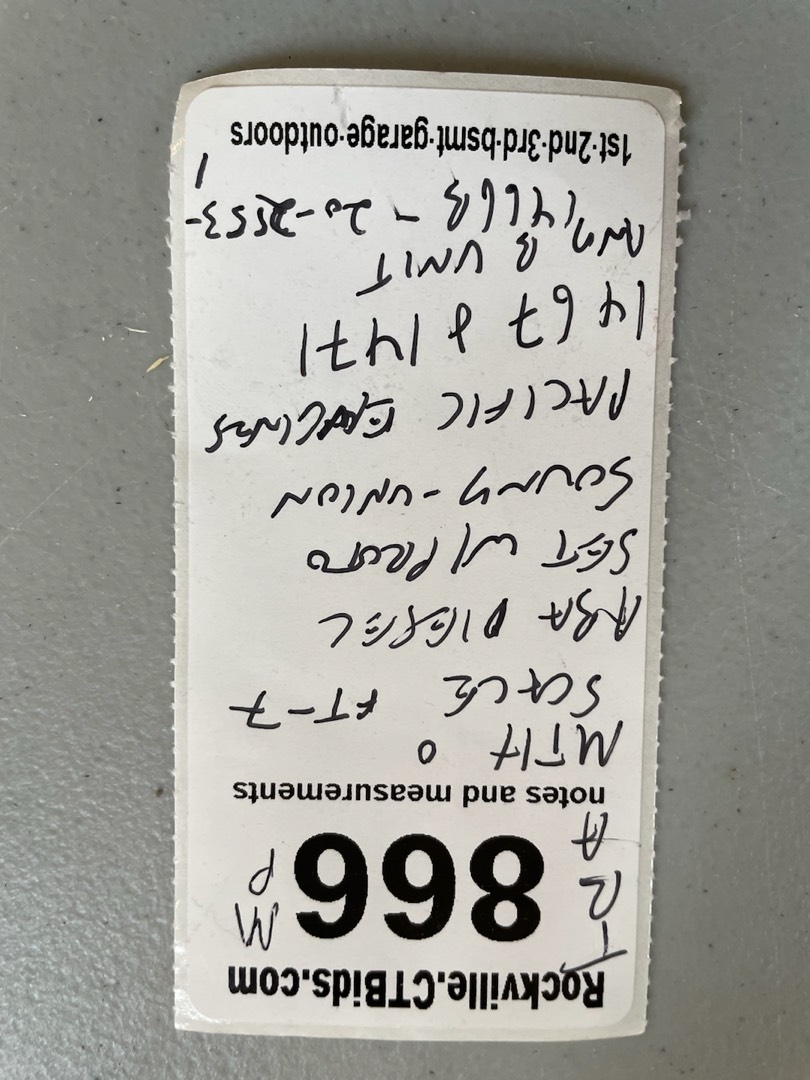 Rockville.CTBids.com
T
R
A
866
M
P
notes and measurements
MTH O
SCALE FT-7
ABA DIESEL
SET W/PROTO
SOUND-UNION
PACIFIC ENGINES
1467 & 1471
AND B UNIT
1466B - 20-2553-
1
1st·2nd·3rd·bsmt·garage·outdoors